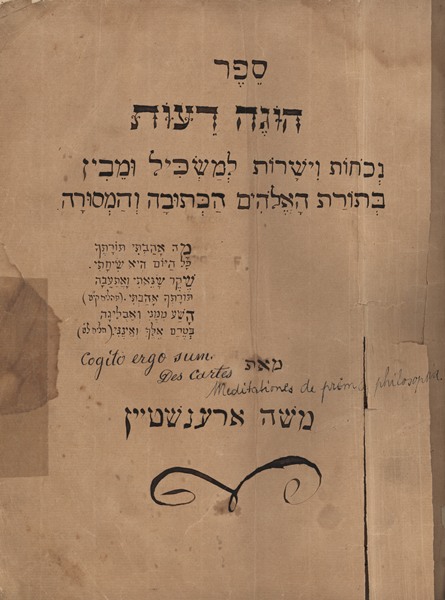 סֵפֶר
הוֹגֶה דֵעוֹת
נְכֹחוֹת וִישָׁרוֹת לְמַשְׂכִּיל וּמֵבִין
בְּתוֹרַת הָאֱלֹהִים הַכְּתוּבָה וְהַמְסוּרָה
מָה אָהַבְתִּי תוֹרָתֶךָ
כָּל הַיּוֹם הִיא שִׂיחָתִי.
שֶׁקֶר שָׂנֵאתִי וַאֲתַעֵבָה
תּוֹרָתְךָ אָהָבְתִּי.
הָשַׁע מִמֶּנִּי וְאַבְלִיגָה
בְּטֶרֶם אֵלֵךְ וְאֵינֶנִּי.
Cogito ergo sum.
מאת
Des Cartes
Meditationes de prima philosophia
משה ארענשטיין